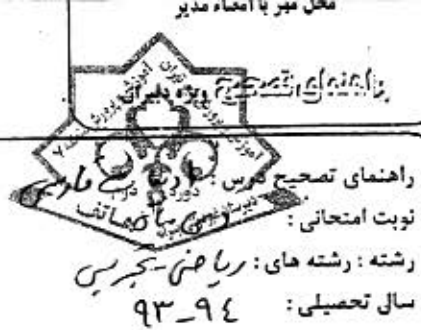 محل مهر یا امضاء مدیر
راهنمای تصحیح ویژه دبیران
راهنمای تصحیح درس : ادبیات فارسی
نوبت امتحانی :
رشته : رشته های : ریاضی - تجربی
سال تحصیلی : ۹۴-۹۳